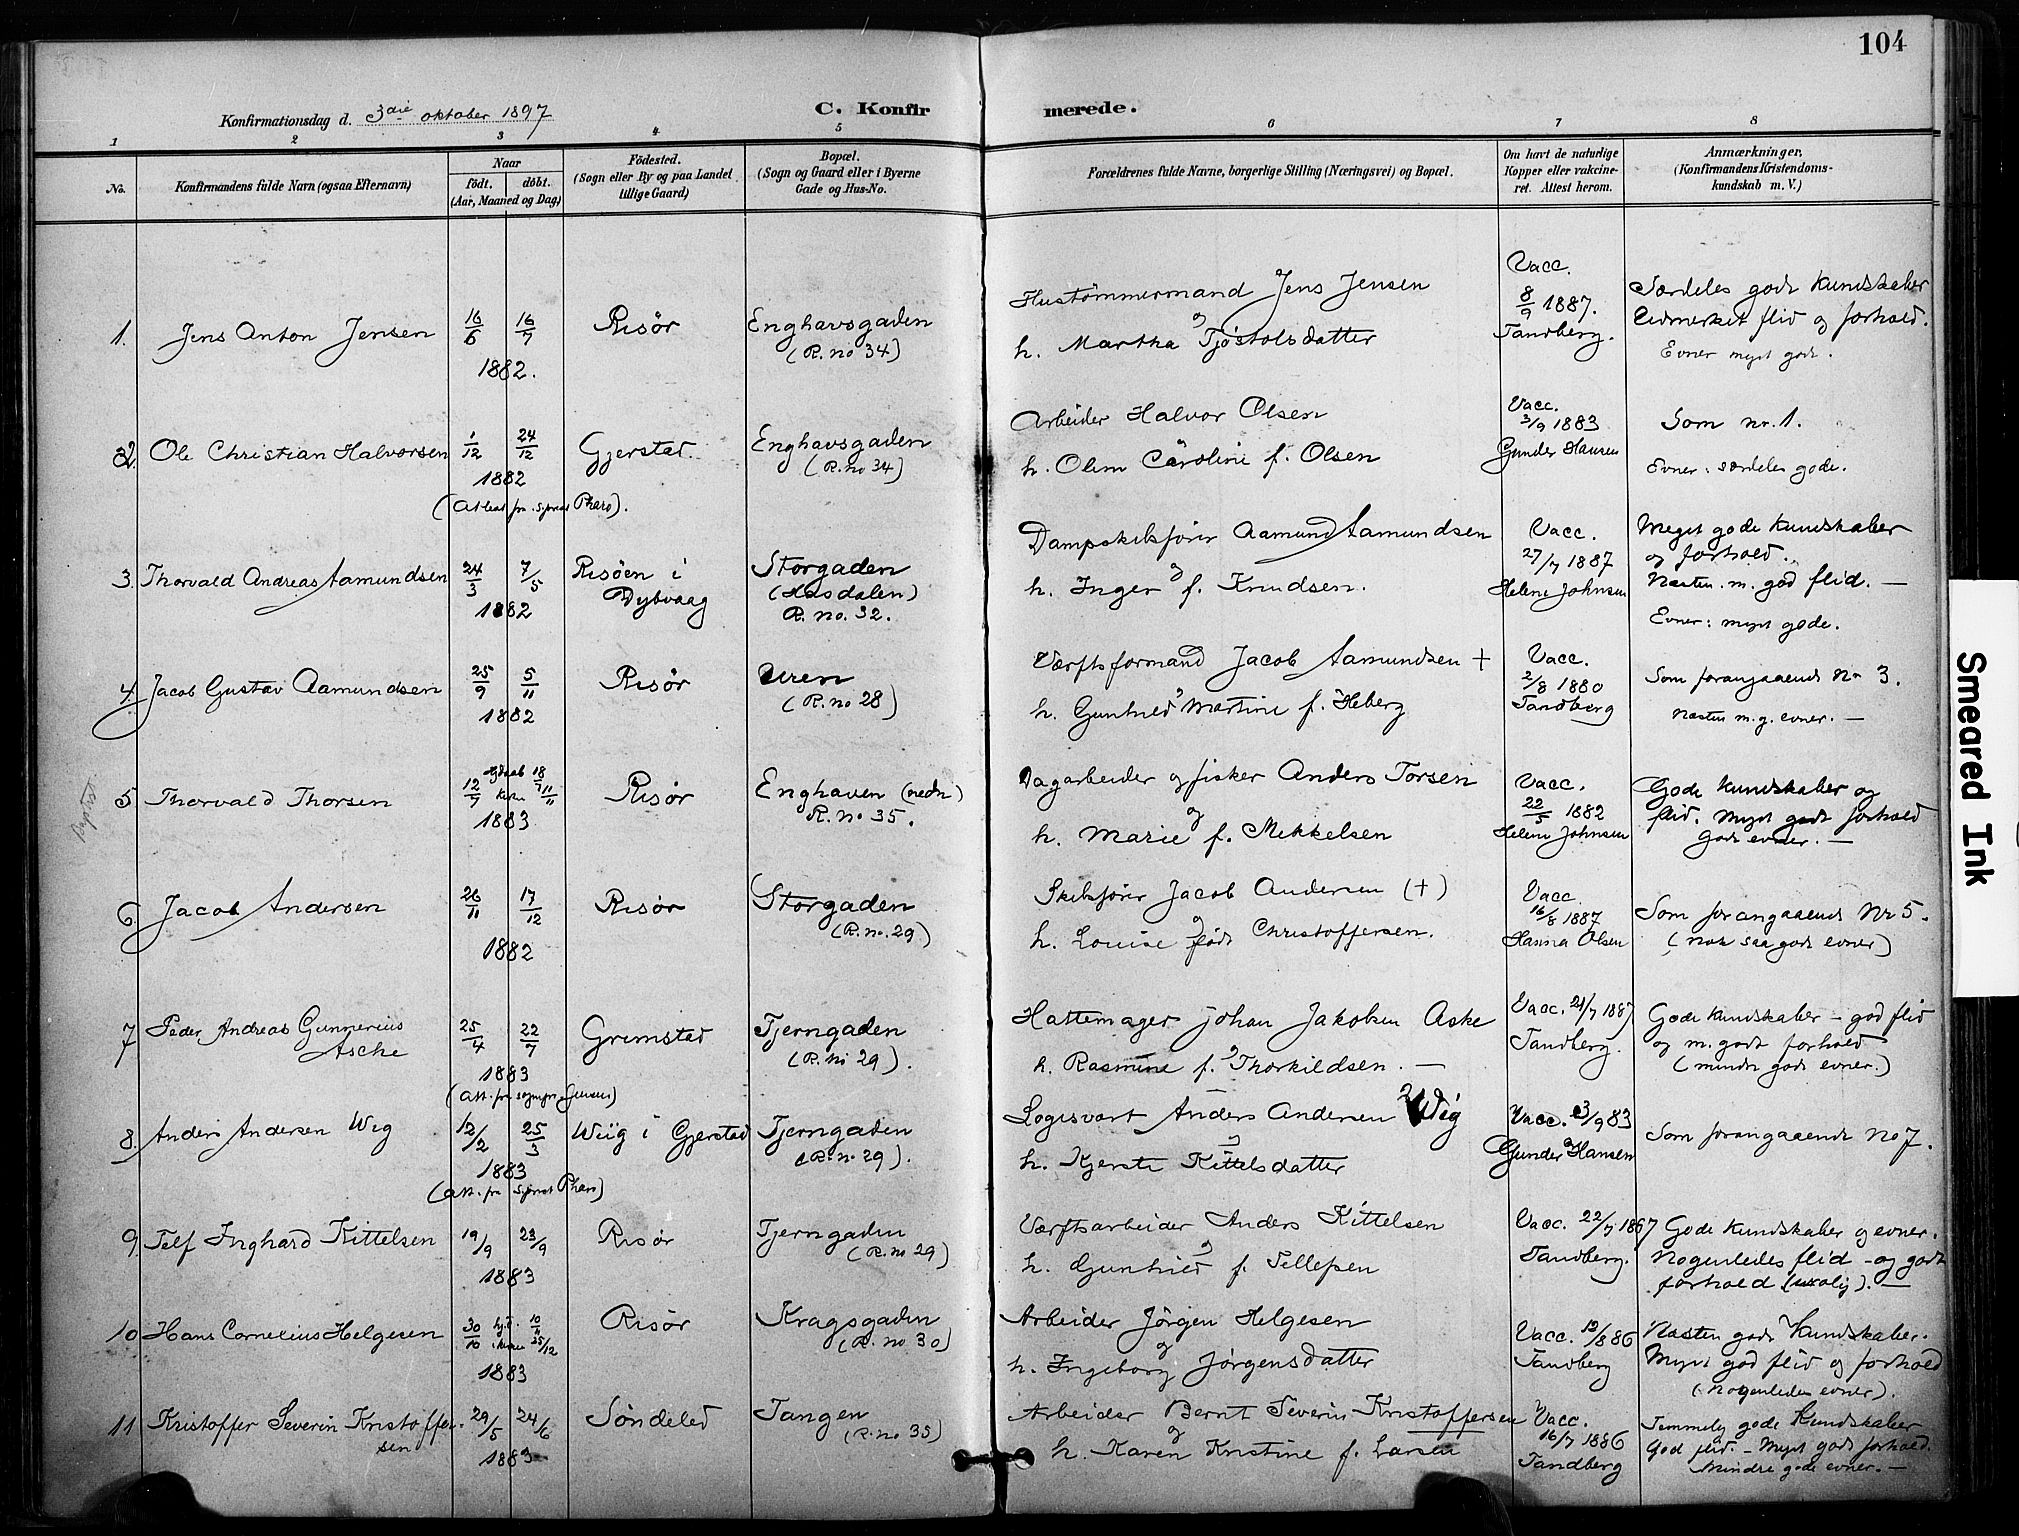 104
Konfirmationsdag d. 3die oktober 1897
C. Konfirmerede.
1 2 3 4 5 6 7 8
No.
Konfirmandens fulde Navn (ogsaa Efternavn)
Naar
födt. döbt.
(Aar, Maaned og Dag)
Födested.
(Sogn eller By og paa Landet
tillige Gaard)
Bopæl.
(Sogn og Gaard eller i Byerne
Gade og Hus-No.
Forældrenes fulde Navne, borgerlige Stilling (Næringsvei) og Bopæl.
Om havt de naturlige
Kopper eller vakcine-
ret. Attest herom.
Anmærkninger,
(Konfirmandens Kristendoms-
kundskab m. V.)
1. Jens Anton Jensen
16/6 16/7
1882.
Risør
Enghavsgaden
(R. no 34)
Hustömmermand Jens Jensen
og
h. Martha Tjöstolsdatter
Vacc.
8/9 1887.
Tandberg.
Særdeles gode kundskaber
Udmerket flid og forhold.
Evner myet gode.
2. Ole Christian Halvorsen
1/12 24/12
1882
(Attest fra Sognepr. Pharo).
Gjerstad
Enghavsgaden
(R. no 34)
Arbeider Halvor Olsen
h. Oline Caroline f. Olsen
Vacc.
3/9 1883
Gunder Hansen
Som nr. 1.
Evner: særdeles gode.
3. Thorvald Andreas Aamundsen
24/3 7/5
1882
Risöen i
Dybvaag
Storgaden
(Hasdalen)
R. no. 32.
Dampskibsförer Aamund Aamundsen
og
h. Inger f. Knudsen.
Vacc.
27/7 1887
Helene Johnsen
Meget gode kundskaber
og forhold.
Næsten m. god flid. —
Evner: myet gode.
4. Jacob Gustav Aamundsen
25/9 5/11
1882
Risør
Uren
(R. no 28)
Værftsformand Jacob Aamundsen +
h. Gunhild Martine f. Heberg
Vacc.
2/8 1880
Tandberg
Som foregaaende No 3.
Næsten m. g. evner. —
5 Thorvald Thorsen
12/7 18/7 Kirke 11/11
1883
Risør
Enghaven (nedre)
R. no 35.
Dagarbeider og fisker Anders Torsen
og
h. Marie f. Mekkelsen
Vacc.
22/5 1882
Helene Johnsen
Gode kundskaber og
flid. Myet godt forhold
Gode evner. —
6. Jacob Andersen
26/11 17/12
1882
Risør
Storgaden
(R. no. 29)
Skibsförer Jacob Andersen (+)
og
h. Louise födt Christoffersen.
Vacc.
16/8 1887
Hanna Olsen
Som foregaaende Nr 5.
(nok saa gode evner)
7 Peder Andreas Gunnerius
Asche
25/4 22/7
1883
Grimstad
Tjerngaden
(R. no 29).
Hattemager Johan Jakobsen Aske
og
h. Rasmine f. Thorkildsen. —
Vacc. 21/7 1887
Tandberg.
Gode kundskaber – god flid
og m. godt forhold
(mindre gode evner.)
8. Anders Andersen Wig
12/2 25/3
1883
(Att. fra Sognepr. Pharo)
Wiig i Gjerstad
Tjerngaden
(R. no 29).
Logisvært Anders Andersen Wig
og
h. Kjersti Kittelsdatter
Vacc. 3/9 83
Gunder Hansen
Som foregaaende No 7.
9. Telf Inghard Kittelsen
19/9 23/9
1883
Risør
Tjerngaden
(R. no 29)
Værftsarbeider Anders Kittelsen
og
h. Gunhild f. Tellefsen
Vacc. 22/7 1867
Tandberg.
Gode kundskaber og evner.
Nogenledes flid – og godt
forhold (urolig). —
10 Hans Cornelius Helgesen
30/10 hjd. 10/11 i kirken 25/12
1883
Risør
Kragsgaden
(R. no 30)
Arbeider Jörgen Helgesen
og
h. Ingeborg Jørgensdatter
Vacc. 12/8 86
Tandberg
Næsten gode Kundskaber.
Myet god flid og forhold
(nogenledes evner).
11 Kristoffer Severin Kristoffer-
sen
29/5 24/6
1883
Söndeled
Tangen
(R. no 35)
Arbeider Bernt Severin Kristoffersen
og
h. Karen Kristine f. Larsen
Vacc.
16/7 1886
Tandberg
Temmelig gode Kundskaber
God flid – Myet godt forhold.
Mindre gode evner. —
Smeared Ink